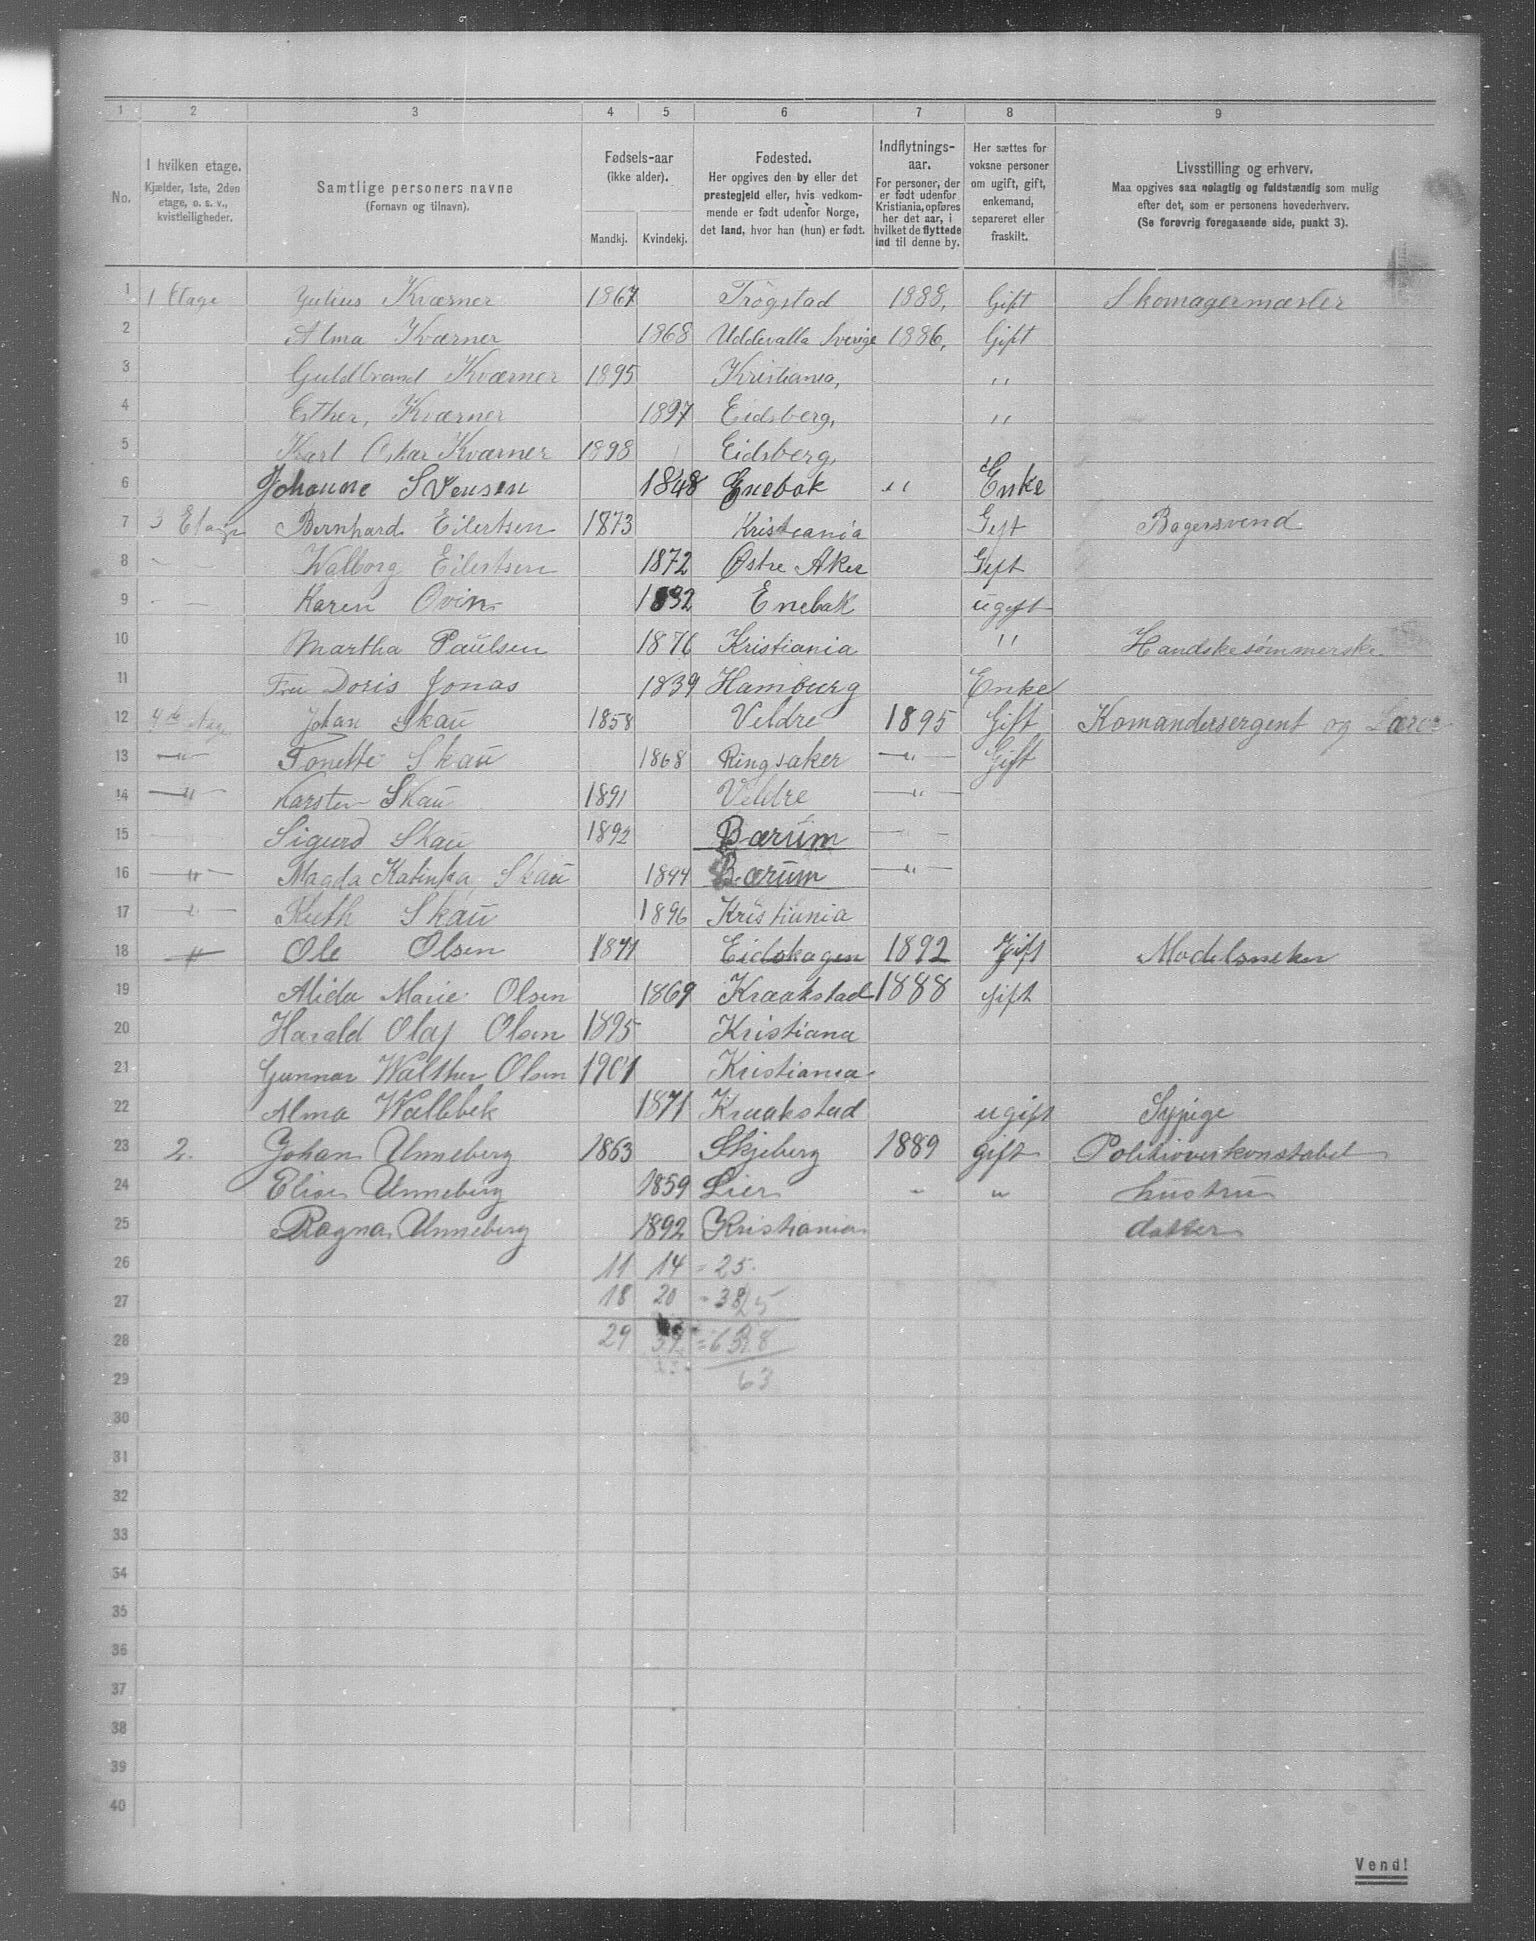 1 2 3 4 5 6 7 8 9
No.
I hvilken etage.
Kjælder, 1ste, 2den
etage, o. s. v.,
kvistleiligheder.
Samtlige personers navne
(Fornavn og tilnavn).
Fødsels-aar
(ikke alder).
Mandkj. Kvindekj.
Fødested.
Her opgives den by eller det
prestegjeld eller, hvis vedkom-
mende er født udenfor Norge,
det land, hvor han (hun) er født.
Indflytnings-
aar.
For personer, der
er født udenfor
Kristiania, opføres
her det aar, i
hvilket de flyttede
ind til denne by.
Her sættes for
voksne personer
om ugift, gift,
enkemand,
separeret eller
fraskilt.
Livsstilling og erhverv.
Maa opgives saa nøiagtig og fuldstændig som mulig
efter det, som er personens hovederhverv.
(Se forøvrig foregaaende side, punkt 3).
1 1 Etage Julius Kværner 1867 Trøgstad 1888, Gift Skomagermæster
2 Alma Kværner 1868 Uddevalla Sverige 1886, Gift
3 Guldbrand Kværner 1895 Kristiania, ,,
4 Esther, Kværner 1897 Eidsberg, ,,
5 Karl Oskar Kværner 1898 Eidsberg,
6 Johanne Svensen 1848 Enebak ,, Enke
7 3 Etage Bernhard Eilertsen 1873 Kristiania Gift Bagersvend
8 Walborg Eilertsen 1872 Østre Aker Gift
9 Karen Ovin 1832 Enebak ugift
10 Martha Paulsen 1876 Kristiania ,, Handskesømmerske
11 Fru Doris Jonas 1839 Hamburg Enke
12 4de Johan Skau 1858 Veldre 1895 Gift Komandersergent og Lærer
13 —"— Tonette Skau 1868 Ringsaker —"— Gift
14 —"— Karsten Skau 1891 Veldre —"—
15 Sigurd Skau 1892 Bærum —"—
16 —"— Magda Katinka Skau 1894 Bærum —"—
17 —"— Ruth Skau 1896 Kristiania
18 —"— Ole Olsen 1871 Eidskogen 1892 Gift Modelsneker
19 Alida Marie Olsen 1869 Kraakstad 1888 gift
20 Harald Olaf Olsen 1895 Kristiana
21 Gunnar Walther Olsen 1901 Kristiania
22 Alma Wallebek 1871 Kraakstad ugift Sypige
23 2. Johan Unneberg 1863 Skjeberg 1889 gift Politioverkonstabel
24 Elise Unneberg 1859 Lier " " hustru
25 Ragna Unneberg 1892 Kristiania datter
26 11 14 = 25.
27 18 20 = 38
28 29
29 63
30
31
32
33
34
35
36
37
38
39
40
Vend!